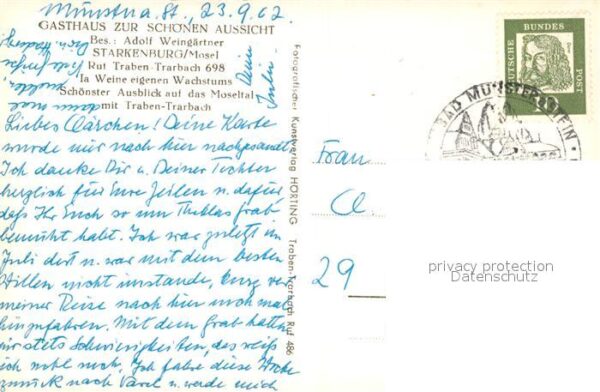 Münster a. St., 23.9.62
GASTHAUS ZUR SCHÖNEN AUSSICHT
Bes.: Adolf Weingärtner
STARKENBURG/Mosel
Ruf Traben-Trarbach 698
la Weine eigenen Wachstums
Schönster Ausblick auf das Moseltal
mit Traben-Trarbach
Liebes Clärchen! Deine Karte
wurde mir nach hier nachgesandt.
Ich danke Dir u. Deiner Tochter
herzlich für Eure Zeilen u. dafür
daß Ihr Euch so um Theklas Grab
bemüht habt. Ich war zuletzt im
Juli dort u. war mit dem besten
Willen nicht imstande, kurz vor
meiner Reise nach hier noch mal
hinzufahren. Mit dem Grab hatten
wir stets Schwierigkeiten, das weiß
ich wohl noch. Ich fahre diese Woche
zurück nach Varel u. werde mich
Fotografischer Kunstverlag HÖRTING Traben-Trarbach Ruf 486
Frau
Cl.
29
DEUTSCHE BUNDESPOST
BAD MÜNSTER STEIN
privacy protection
Datenschutz